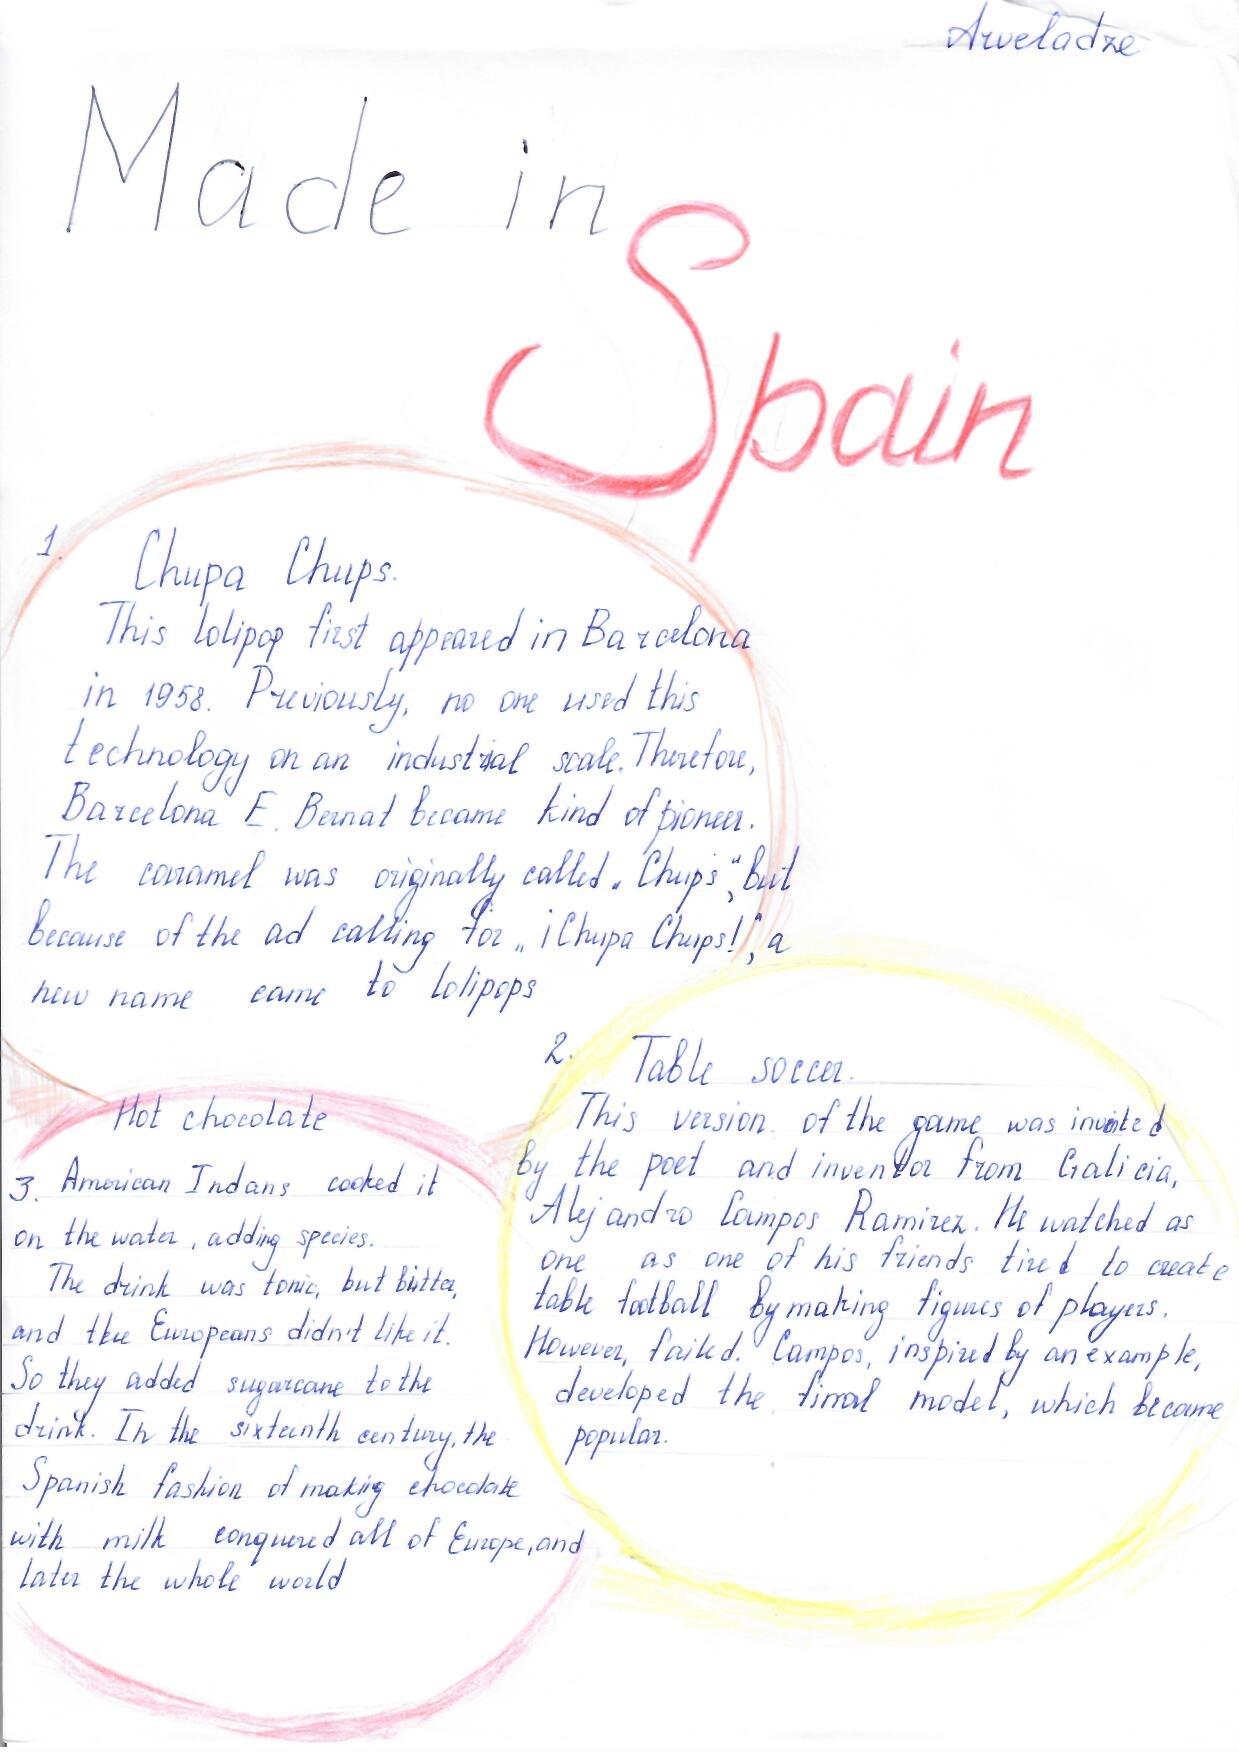 Arveladze
Made in
Spain
1.
Chupa Chups.
This lolipop first appeared in Barcelona
in 1958. Previously, no one used this
technology on an industrial scale. Therefore,
Barcelona E. Bernat became kind of pioneer.
The caramel was originally called „Chups“, but
because of the ad calling for „¡Chupa Chups!“, a
new name came to lolipops
2.
Table soccer.
This version of the game was invited
by the poet and inventor from Galicia,
Alejandro Campos Ramirez. He watched as
one as one of his friends tired to create
table football by making figures of players.
However, failed. Campos, inspired by an example,
developed the finnal model, which became
popular.
Hot chocolate
3. American Indans cooked it
on the water, adding species.
The drink was tonic, but bitter,
and the Europeans didn't like it.
So they added sugarcane to the
drink. In the sixteenth century, the
Spanish fashion of making chocolate
with milk conquered all of Europe, and
later the whole world